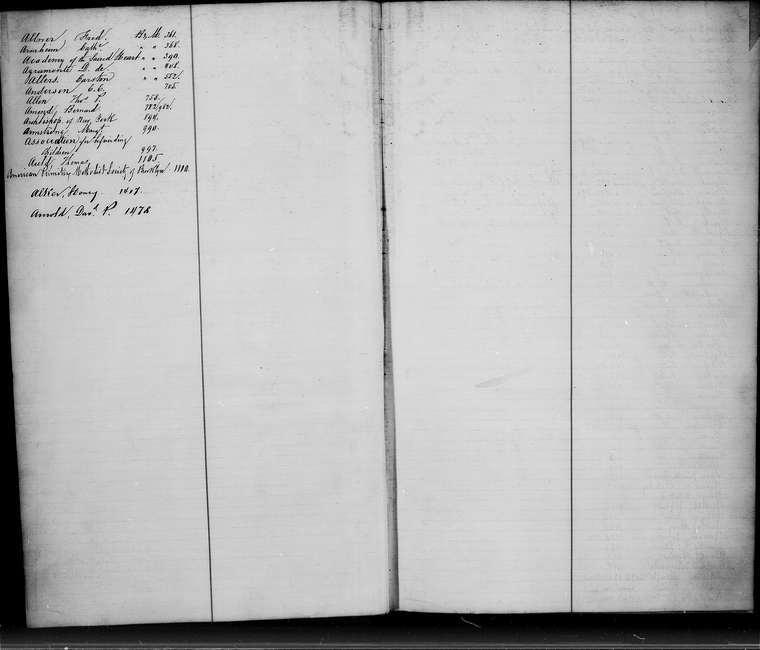 Altner, Fred. Bk M. 361.
Arnheim, Cathe " " 368.
Academy of the Sacred Heart " " 390.
Agramonte D. de. " " 408.
Ulters. Carsten " " 552/.
Anderson C. C. 705.
Allen Thos P. 758.
Amend, Bernard. 782/952/.
Archbishop of New York 894.
Armstrong Margt 990.
Association for befriending
Children 997.
Auld, Thomas, 1105.
American Primitive Methodist Society of Brooklyn 1110.
Alker, Henry. 1407.
Arnold, Davd. P. 1478